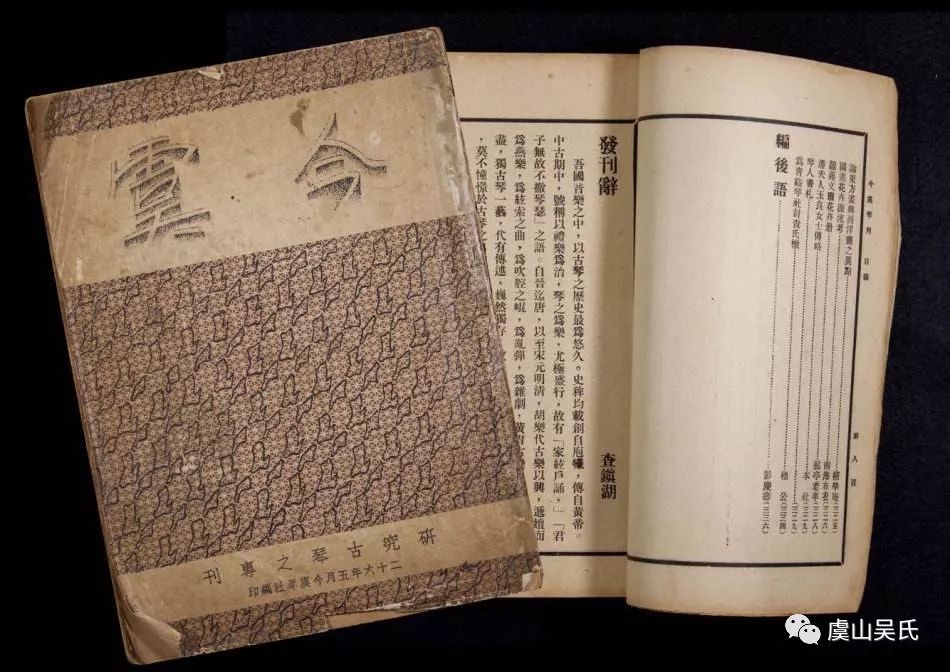 今虞
研究古琴之專刊
二十六年五月今虞琴社編印
今虞琴刊 目錄 第八頁
論東方畫與西洋畫之異點
國畫花卉源流考
潘夫人玉良女士傳略 本社(三二九)
琴人書札
為青谿琴社討查氏檄
編後語 彭慶壽(三三六)
發刊辭 查鎮湖
吾國音樂之中,以古琴之歷史最爲悠久。史稗均載創自庖犧,傳自黃帝。
中古期中,號稱以禮樂爲治,琴之爲樂,尤極盛行,故有「家絃戶誦,」「君
子無故不撤琴瑟」之語。自晉迄唐,以至宋元明清,胡樂代古樂以興,遞嬗而
爲燕樂,爲絃索之曲,爲吹腔之崐,爲亂彈,爲雜劇,黃冑古
盡,獨古琴一藝,代有傳述,巍然獨存
,莫不憧憬於古琴之
虞山吴氏